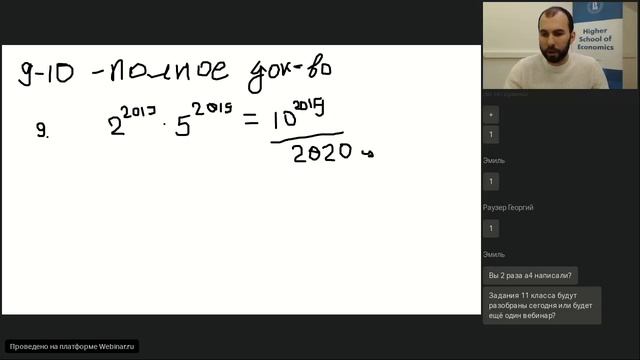 9-10 - полное док-во
9. 2^2019 · 5^2019 = 10^2019
2020
Higher
School of
Economics
+
1
Эмиль
1
Раузер Георгий
1
Эмиль
Вы 2 раза a4 написали?
Задания 11 класса будут
разобраны сегодня или будет
ещё один вебинар?
Проведено на платформе Webinar.ru